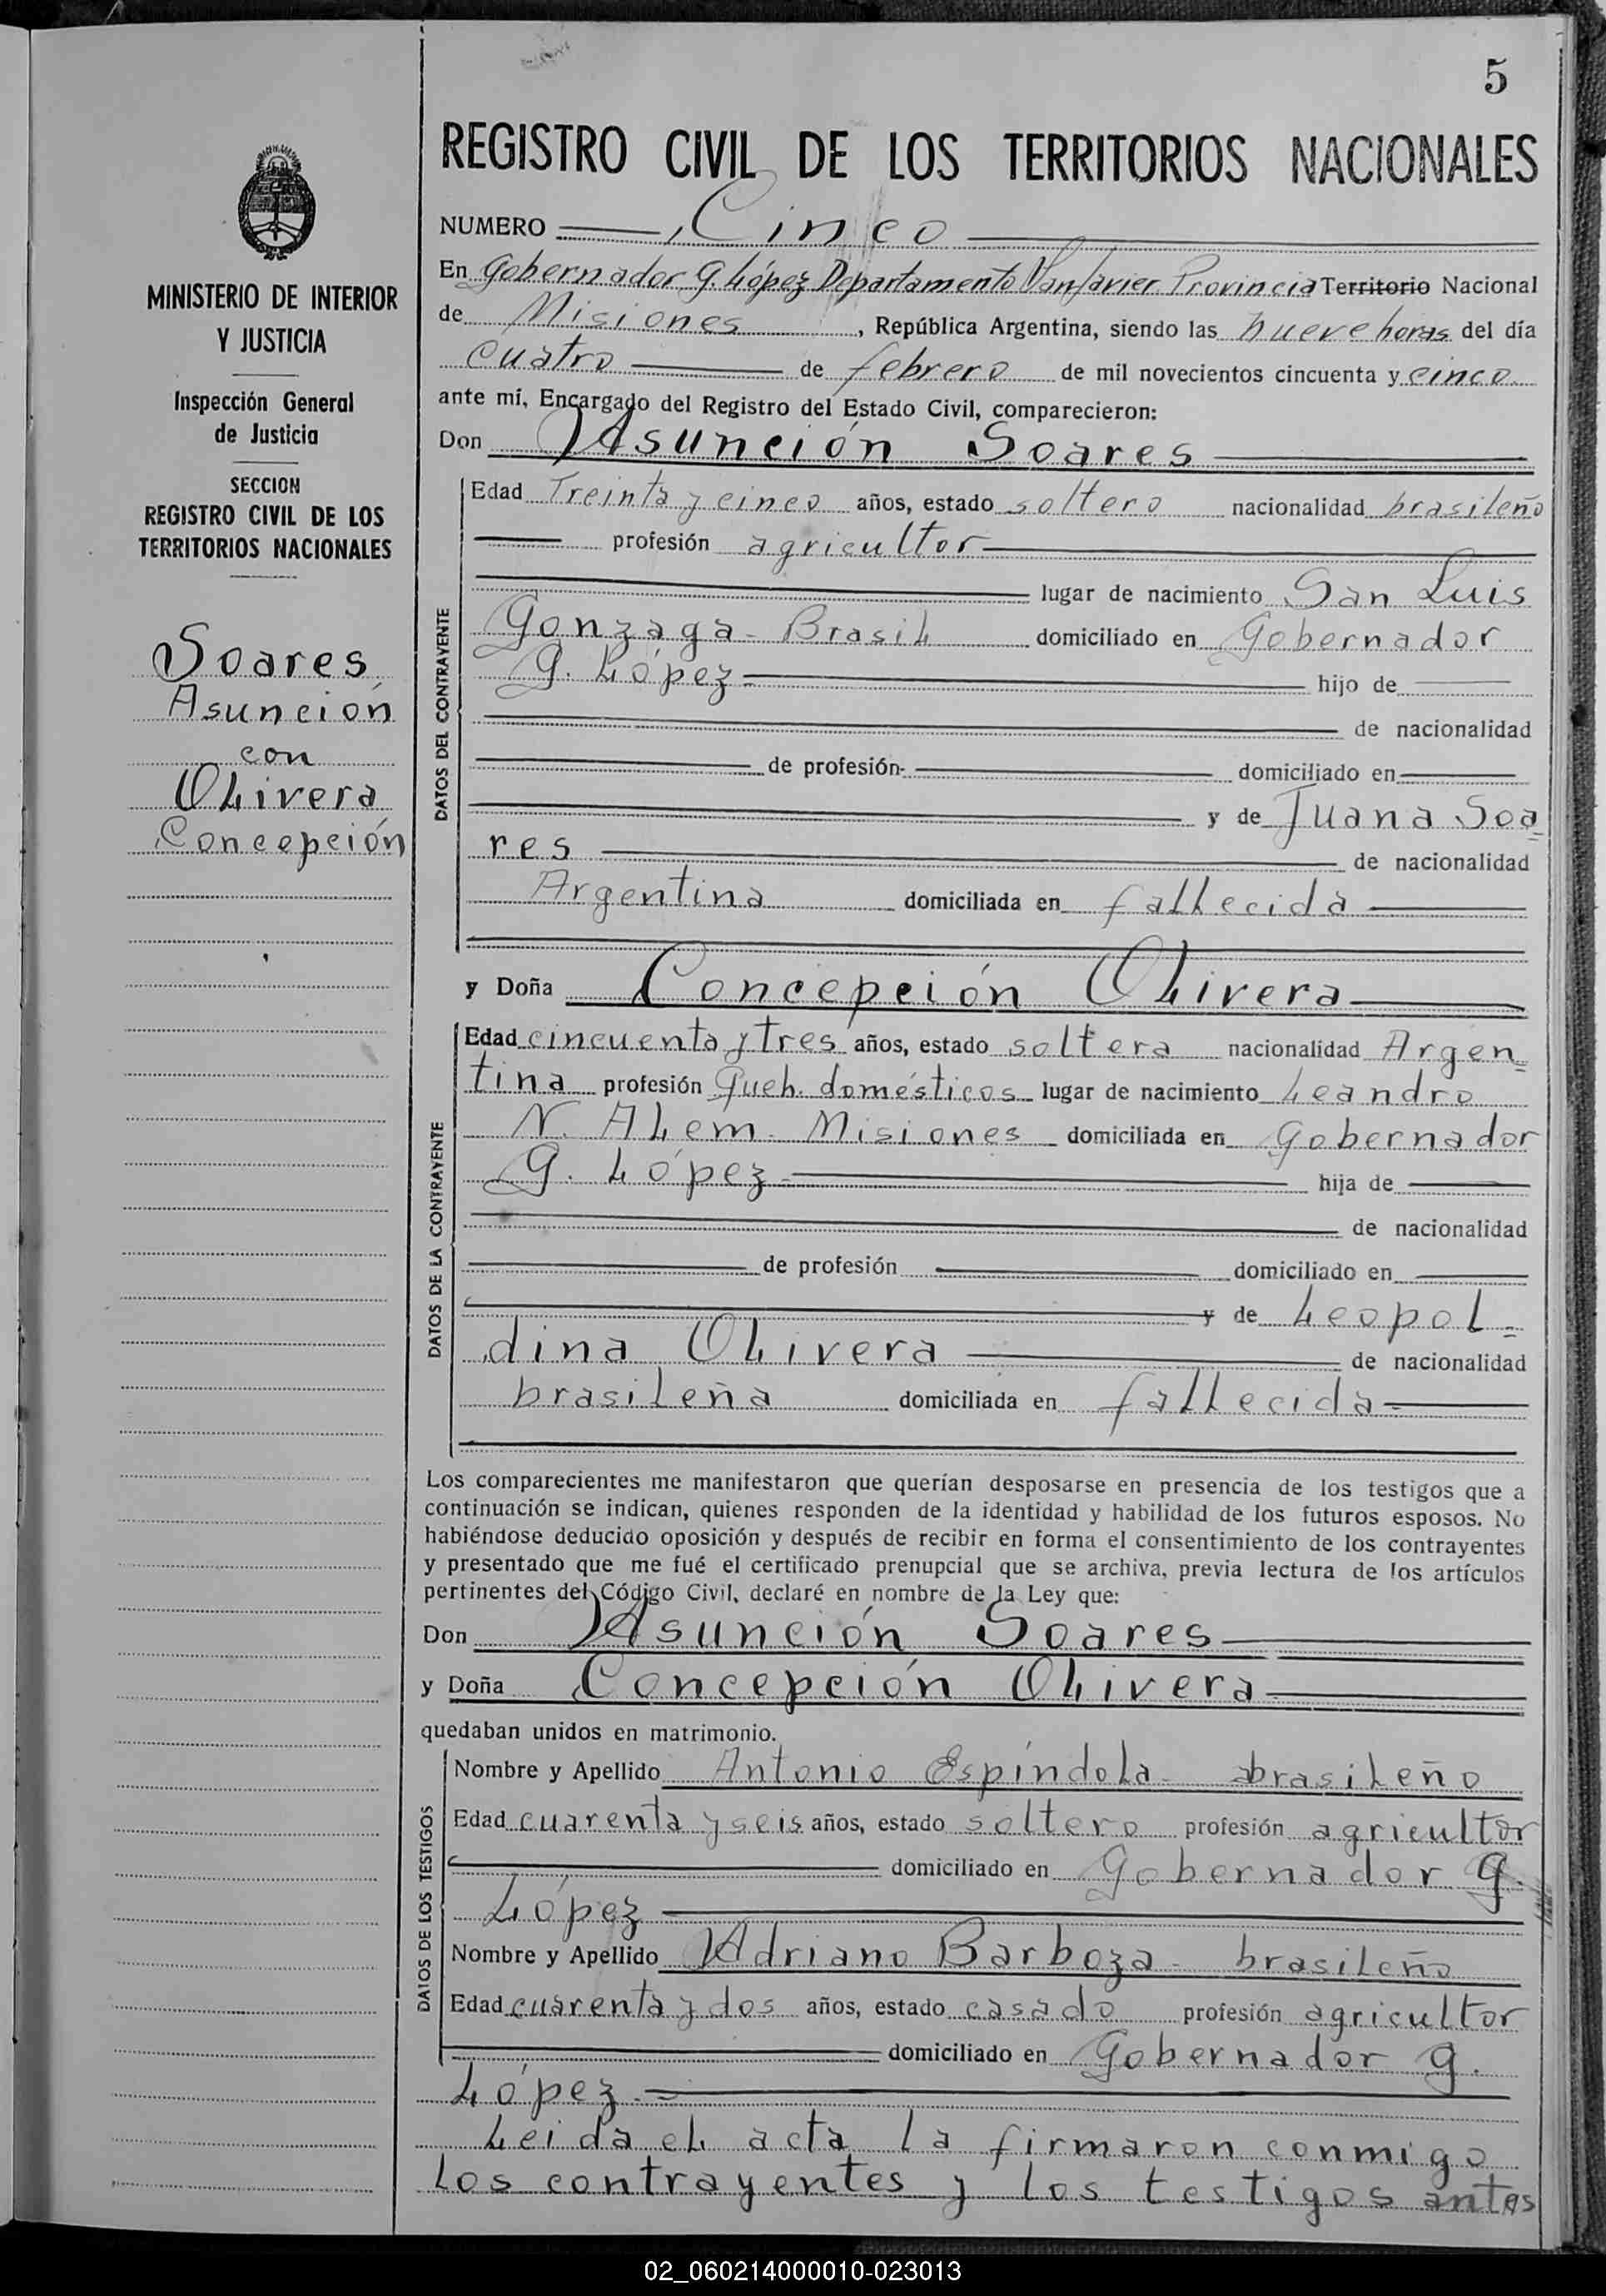 5
REGISTRO CIVIL DE LOS TERRITORIOS NACIONALES
MINISTERIO DE INTERIOR
Y JUSTICIA
Inspección General
de Justicia
SECCION
REGISTRO CIVIL DE LOS
TERRITORIOS NACIONALES
Soares
Asunción
con
Olivera
Concepción
NUMERO Cinco
En Gobernador G. López Departamento San Javier Provincia Territorio Nacional
de Misiones, República Argentina, siendo las nueve horas del día
cuatro de febrero de mil novecientos cincuenta y cinco
ante mí, Encargado del Registro del Estado Civil, comparecieron:
Don Asunción Soares
DATOS DEL CONTRAYENTE
Edad Treinta y cinco años, estado soltero nacionalidad brasileño
profesión agricultor
lugar de nacimiento San Luis
Gonzaga - Brasil domiciliado en Gobernador
G. López hijo de
de nacionalidad
de profesión domiciliado en
y de Juana Soa
res de nacionalidad
Argentina domiciliada en fallecida
y Doña Concepción Olivera
DATOS DE LA CONTRAYENTE
Edad cincuenta y tres años, estado soltera nacionalidad Argen=
tina profesión Queh. domésticos lugar de nacimiento Leandro
N. Alem - Misiones domiciliada en Gobernador
G. López hija de
de nacionalidad
de profesión domiciliado en
y de Leopol=
dina Olivera de nacionalidad
brasileña domiciliada en fallecida
Los comparecientes me manifestaron que querían desposarse en presencia de los testigos que a
continuación se indican, quienes responden de la identidad y habilidad de los futuros esposos. No
habiéndose deducido oposición y después de recibir en forma el consentimiento de los contrayentes
y presentado que me fué el certificado prenupcial que se archiva, previa lectura de los artículos
pertinentes del Código Civil, declaré en nombre de la Ley que:
Don Asunción Soares
y Doña Concepción Olivera
quedaban unidos en matrimonio.
DATOS DE LOS TESTIGOS
Nombre y Apellido Antonio Espíndola - brasileño
Edad cuarenta y seis años, estado soltero profesión agricultor
domiciliado en Gobernador G.
López
Nombre y Apellido Adriano Barboza - brasileño
Edad cuarenta y dos años, estado casado profesión agricultor
domiciliado en Gobernador G.
López
Leida el acta la firmaron conmigo
los contrayentes y los testigos antes
02_060214000010-023013